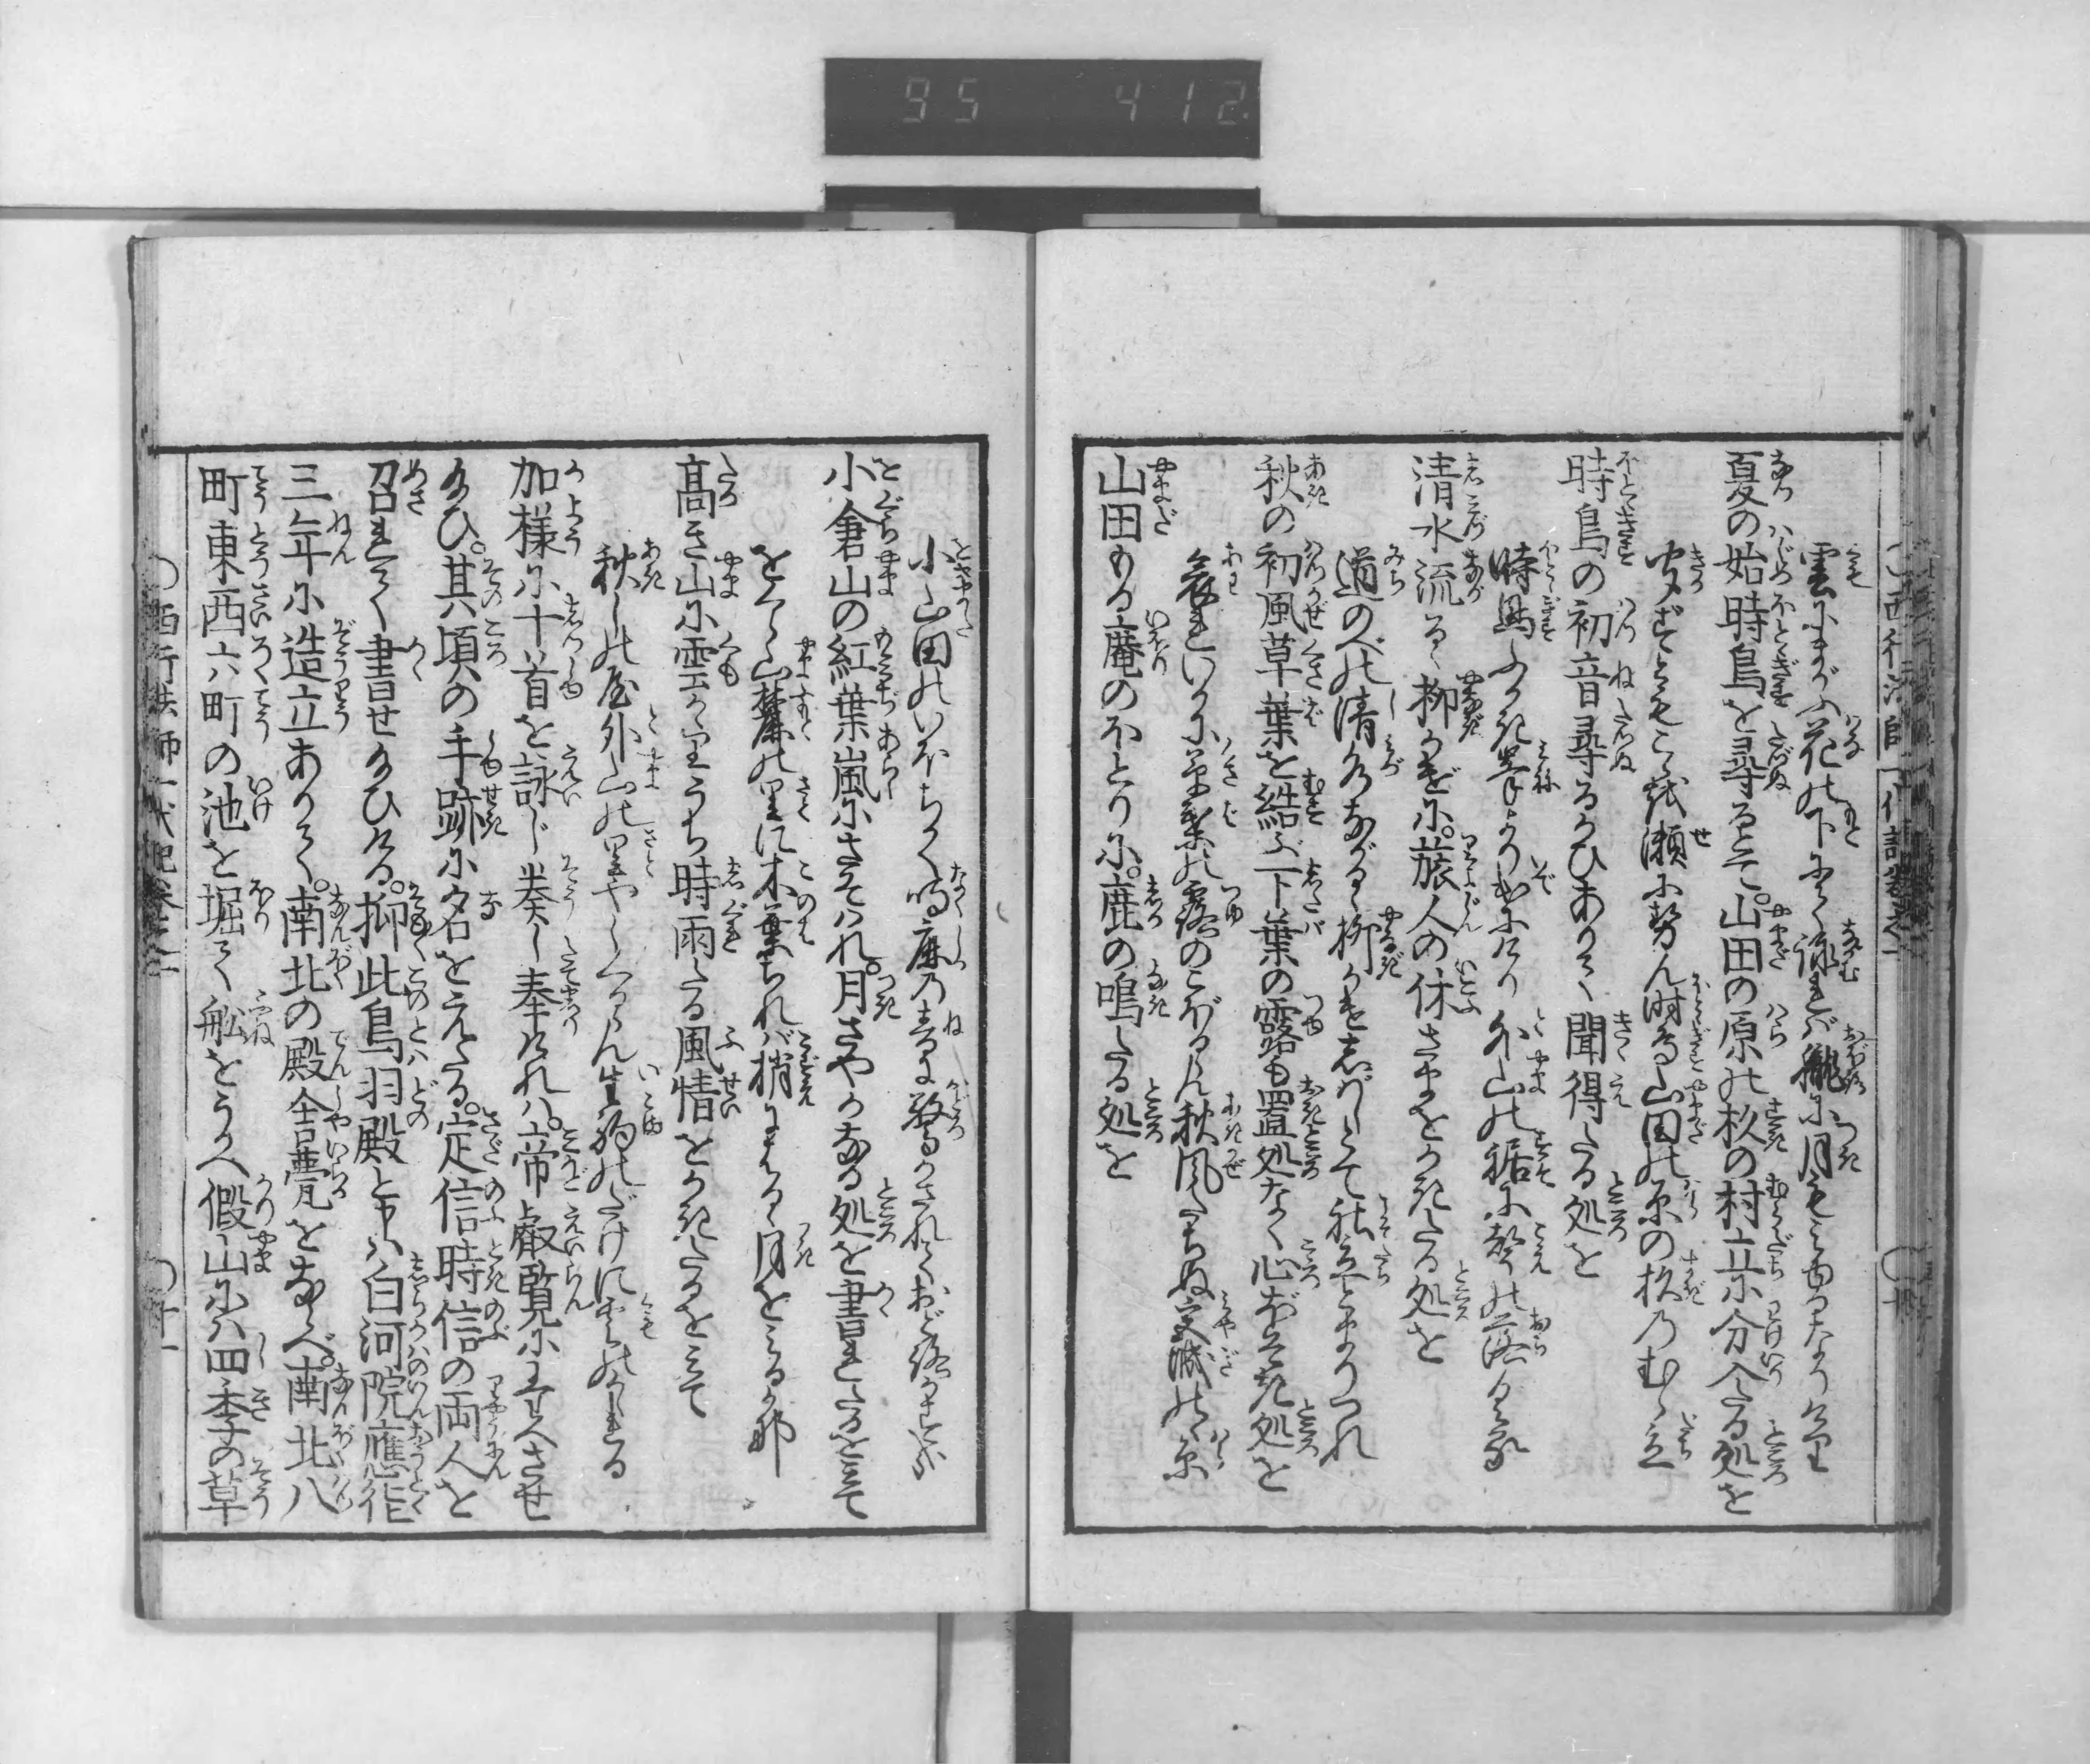 95 412
雲にまがふ花の下にて詠れば朧に月も見ゆるなりけり
夏の始時鳥を尋るとて。山田の原の杉の村立に分入たる処を
聞ずともこゝを瀬にせん時鳥山田の原の杉のむら立
時鳥の初音尋るかひありて聞得たる処を
時鳥ふかき峯より出にけり外山の裾に声の落くる
清水流るゝ柳かげに。旅人の休さまをかきたる処を
道のべの清水ながるゝ柳かげしばしとて社立とまりつれ
秋の初風草葉を結ぶ下葉の露も置処なく心ぼそき処を
哀れいかに草葉の露のこぼるらん秋風たちぬ宮城のゝ原
山田もる庵のほとりに。鹿の鳴たる処を
小山田のいほちかく鳴鹿の音に驚かされておどろかすかな
小倉山の紅葉嵐にさそはれ。月さやかなる処を書れたるをみて
をぐら山麓の里に木葉ちれば梢にはるゝ月をみるかな
高き山に雲かゝりうち時雨たる風情をかきたるをみて
秋しの屋外山の里やしぐるらん生駒のだけに雲のかゝれる
加様に十首を詠じ奏し奉りければ。帝叡覧にそなへさせ
給ひ。其頃の手跡に名をえたる。定信時信の両人を
召れて書せ給ひける。抑此鳥羽殿と申は白河院應徳
三年に造立ありて。南北の殿舎甍をならべ。南北八
町東西六町の池を堀て舩をうかべ假山には四季の草
〇西行法師一代記巻之二